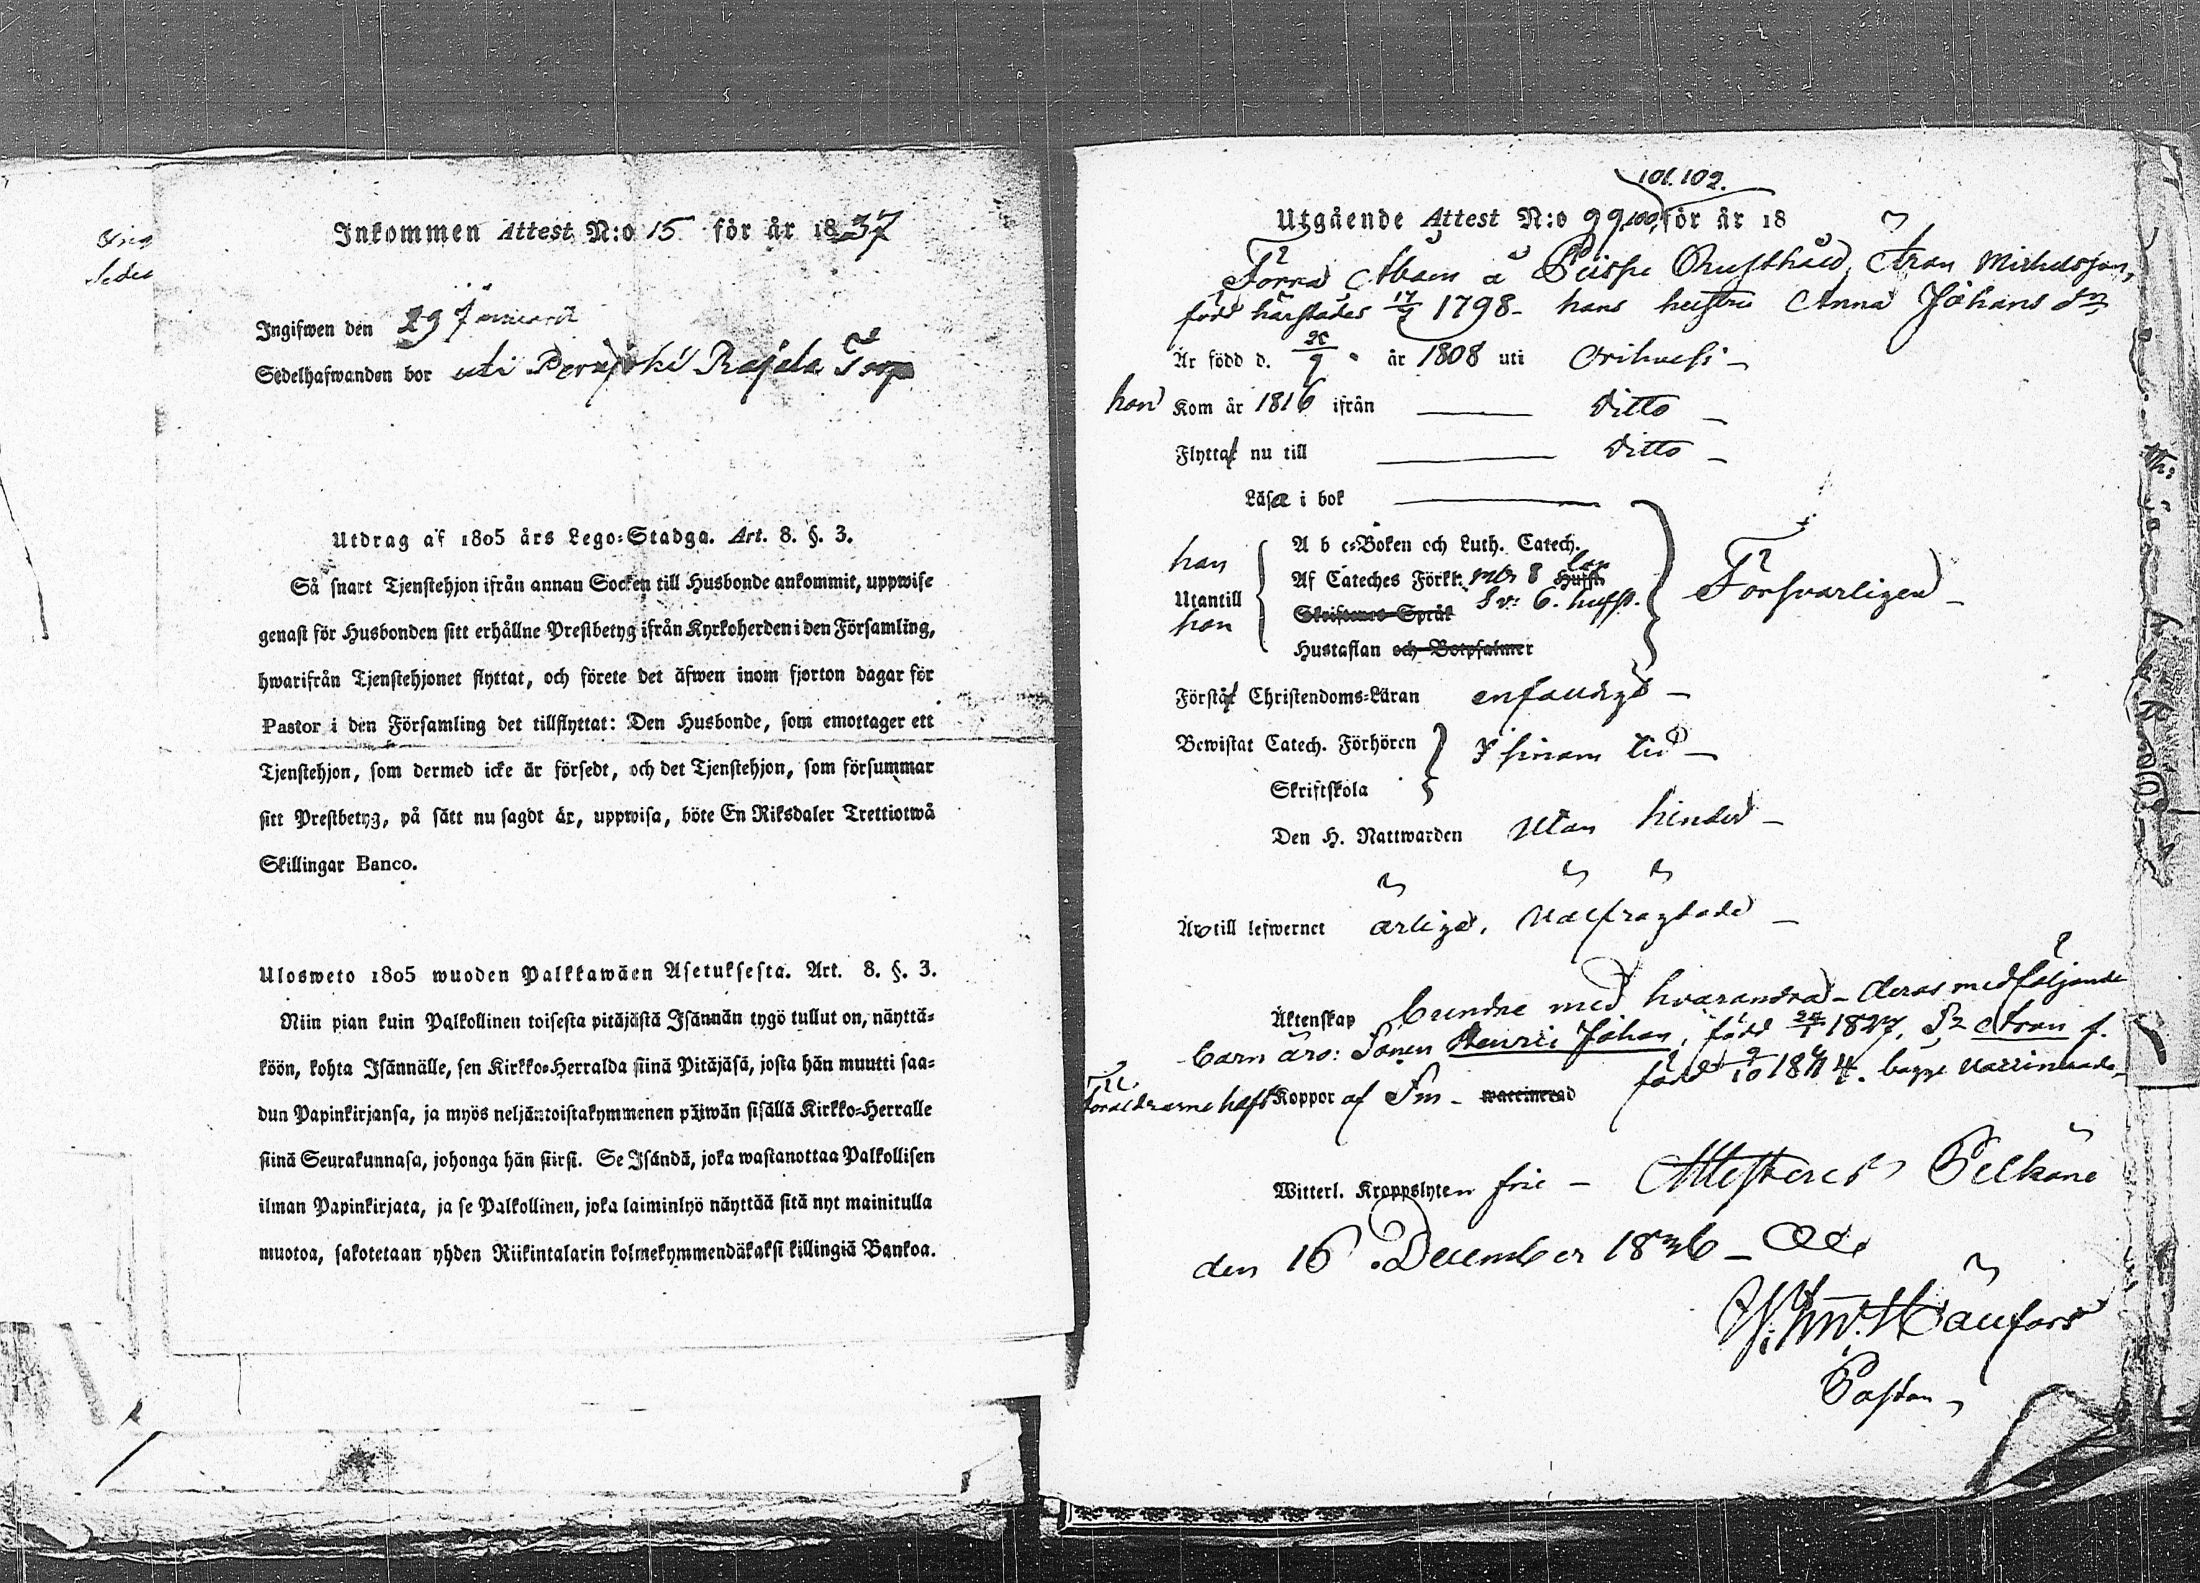 Inkommen Attest N:o 15 för år 1837
Ingifwen den 29 Januarii
Sedelhafwanden bor uti Rajala Torp
Utdrag af 1805 års Lego-Stadga. Art. 8. §. 3.
Så snart Tjenstehjon ifrån annan Socken till Husbonde ankommit, uppwise
genast för Husbonden sitt erhållne Prestbetyg ifrån Kyrkoherden i den Församling,
hwarifrån Tjenstehjonet flyttat, och förete det äfwen inom fjorton dagar för
Pastor i den Församling det tillflyttat: Den Husbonde, som emottager ett
Tjenstehjon, som dermed icke är försedt, och det Tjenstehjon, som försummar
sitt Prestbetyg, på sätt nu sagdt är, uppwisa, böte En Riksdaler Trettiotwå
Skillingar Banco.
Ulosweto 1805 wuoden Palkkawäen Asetuksesta. Art. 8. §. 3.
Niin pian kuin Palkollinen toisesta pitäjästä Isännän tygö tullut on, näyttä-
köön, kohta Isännälle, sen Kirkko-Herralda siinä Pitäjäsä, josta hän muutti saa-
dun Papinkirjansa, ja myös neljäntoistakymmenen päiwän sisällä Kirkko-Herralle
siinä Seurakunnasa, johonga hän siirsi. Se Isändä, joka wastanottaa Palkollisen
ilman Papinkirjata, ja se Palkollinen, joka laiminlyö näyttää sitä nyt mainitulla
muotoa, sakotetaan yhden Riikintalarin kolmekymmendäkaksi killingiä Bankoa.
101. 102.
Utgående Attest N:o 99, 100, för år 18
Förra Åboen å Rusthåld, Aron Michelsson,
född härstädes 17/7 1798 - hans hustru Anna Johans dr
Är född d. 20/9 år 1808 uti Orihvesi -
hon Kom år 1816 ifrån Ditto -
Flytta nu till Ditto -
Läsa i bok
han A b c-Boken och Luth. Catech.
Af Cateches Förkl. 8 Hufst.
Utantill Skriftenes Språk Sv: 6. hufst. Försvarligen -
hon
Hustaflan och Botpsalmer
Förstå Christendoms-Läran enfaldigt -
Bewistat Catech. Förhören I sinom tid -
Skriftskola
Den H. Nattwarden Utan hinder -
Äro till lefwernet ärliga, välfrägdade -
Äktenskap bundne med hvarandra - deras medföljande
barn äro: Sonen Henric Johan, född 24/1 1827, Aron f.
född 2/10 1834. bägge vaccinerade -
Föräldrarne haft Koppor af Sm - waccinerad
Witterl. Kroppslyten frie - Attesteras Pelkäne
den 16 December 1836 -
Pastor